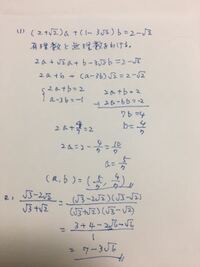 (1) (2+√2)a + (1-3√2)b = 2-√2
有理数と無理数をわける。
2a+√2a+b-3√2b = 2-√2
2a+b + (a-3b)√2 = 2-√2
2a+b=2 2a+b=2
a-3b=-1 -) 2a-6b=-2
7b=4
2a+4/7=2 b=4/7
2a=2-4/7=10/7
a=5/7
(a,b)=(5/7, 4/7)
2. (√3-2√2)/(√3+√2) = (√3-2√2)(√3-√2)/(√3+√2)(√3-√2)
= (3+4-2√6-√6)/1
= 7-3√6